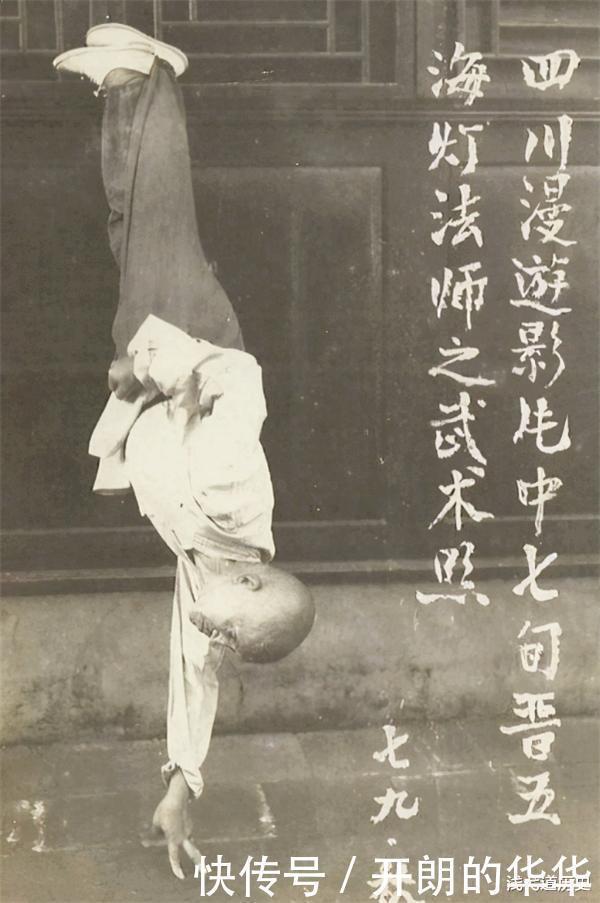 四川漫遊影片中七旬晋五
海灯法师之武术照
七九.
快传号/开朗的华华